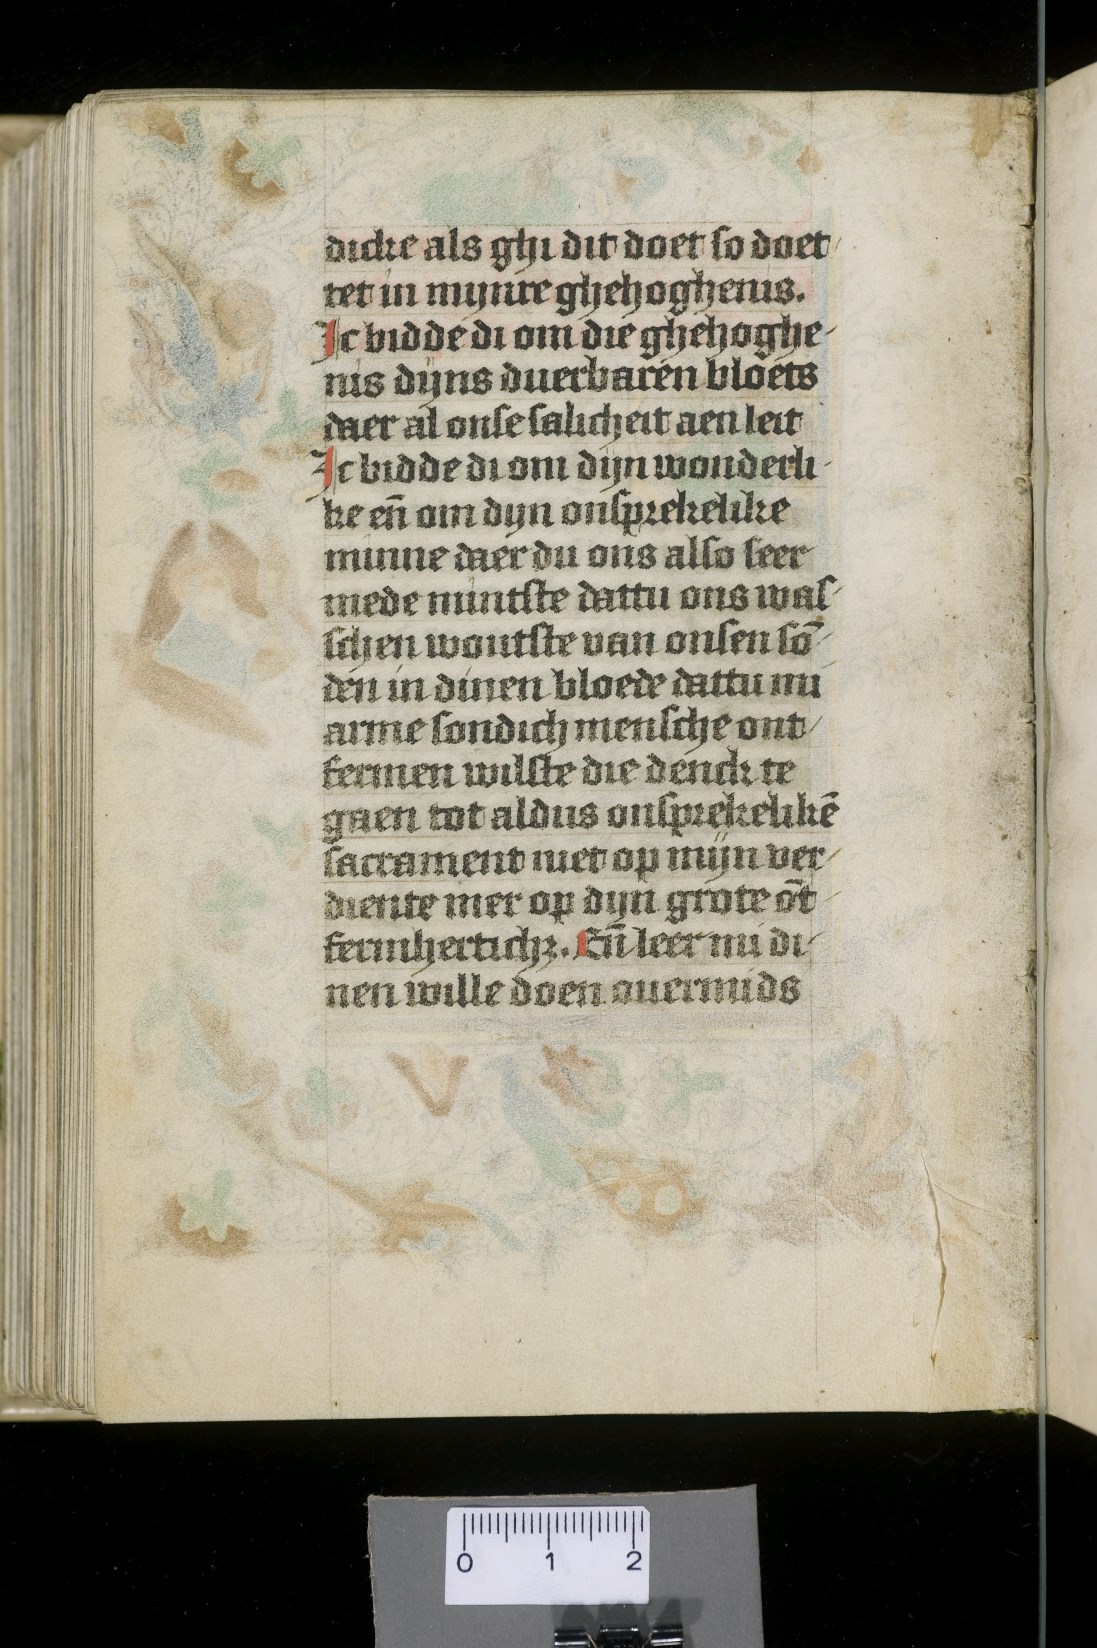 dicke als ghi dit doet so doet
tet in mynre ghehoghenis.
Ic bidde di om die ghehoghe
nis dijns duerbaren bloets
daer al onse salicheit aen leit
Ic bidde di om dijn wonderli
ke en̄ om dijn onsprekelike
minne daer du ons also seer
mede mintste dattu ons was
schen woutste van onsen sō
den in dinen bloede dattu mi
arme sondich mensche ont
fermen wilste die denck te
gaen tot aldus onsprekelikē
sacrament niet op mijn ver
diente mer op dijn grote ōt
fermhertichꝫ. En̄ leer mi di
nen wille doen ouermids
0 1 2